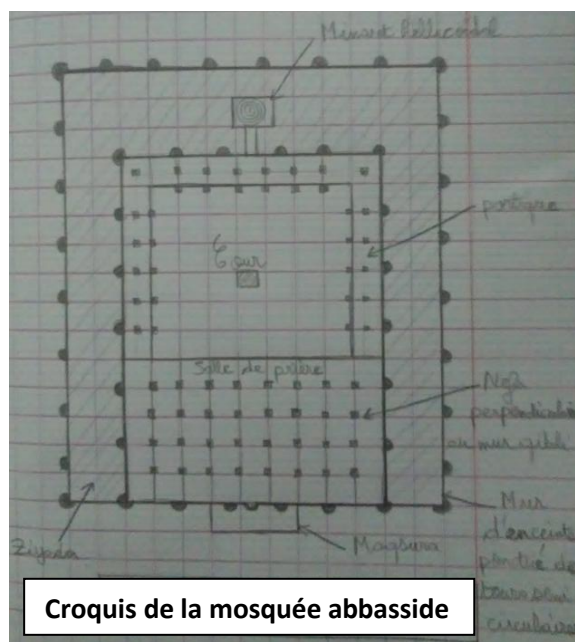 Minaret hélicoïdal
portique
Cour
Salle de prière
Nefs
perpendiculaires
au mur qibli
Ziyada
Maqsura
Mur
d'enceinte
ponctué de
tours semi
circulaires
Croquis de la mosquée abbasside